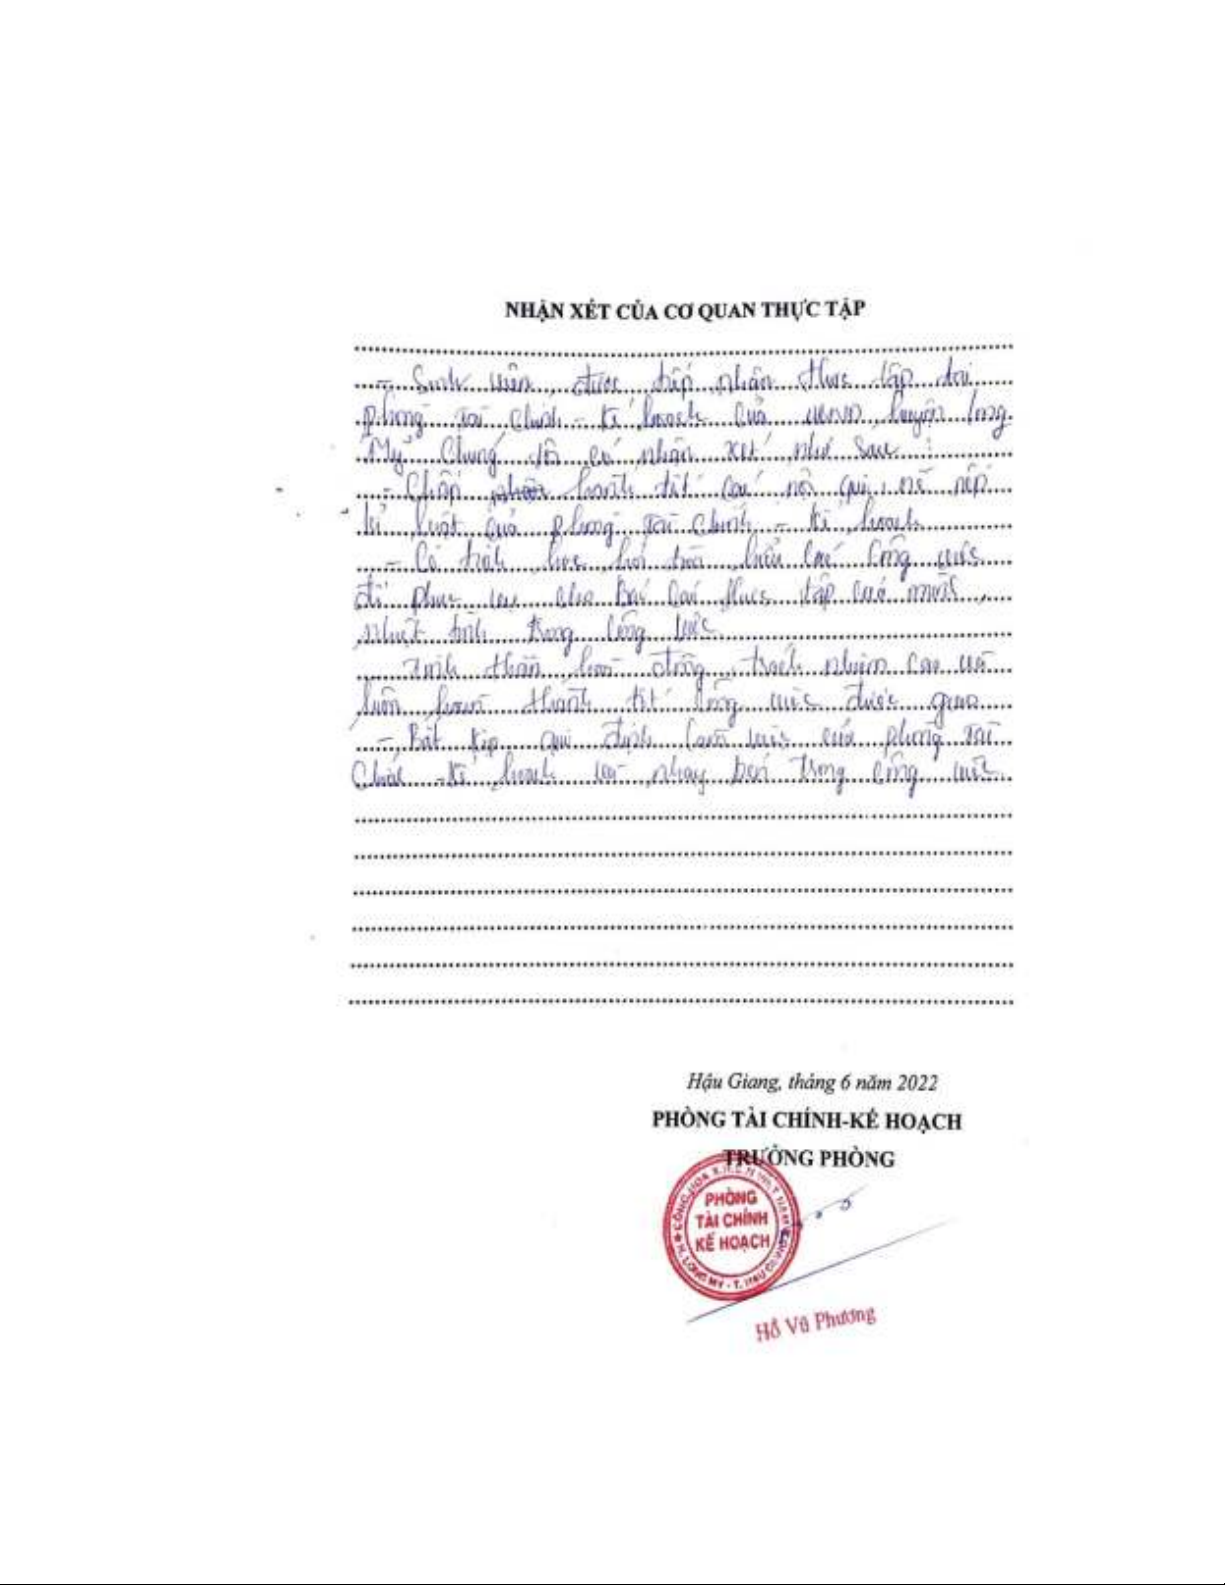 NHẬN XÉT CỦA CƠ QUAN THỰC TẬP
- Sinh viên được tiếp nhận thực tập tại
phòng Tài Chính - Kế hoạch của UBND huyện Long
Mỹ Chúng tôi có nhận xét như sau :
- Chấp hành tốt các nội qui, nề nếp
kỉ luật của phòng Tài Chính - Kế hoạch
- Có tinh học hỏi tìm hiểu các công việc
để phục vụ cho Báo Cáo thực tập của mình,
nhiệt tình trong công việc
Tinh thần hoà đồng, trách nhiệm cao và
luôn hoàn thành tốt công việc được giao
- Bắt kịp qui định làm việc của phòng Tài
Chính - Kế hoạch và nhạy bén trong công việc
Hậu Giang, tháng 6 năm 2022
PHÒNG TÀI CHÍNH-KẾ HOẠCH
TRƯỞNG PHÒNG
PHÒNG
TÀI CHÍNH
KẾ HOẠCH
Hồ Vũ Phương